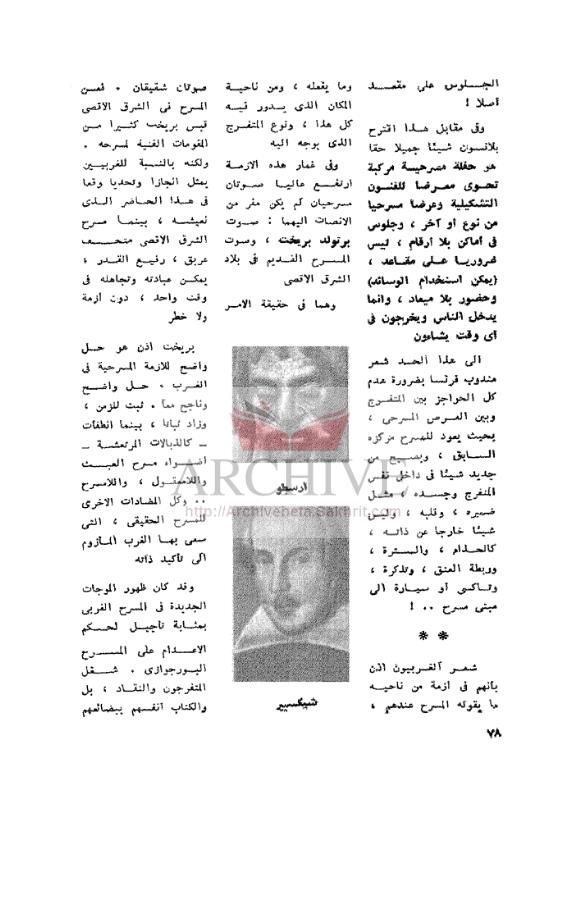 الجلوس على مقعد
أصلا !
وفى مقابل هذا اقترح
بلانسون شيئا جميلا حقا
هو حفلة مصرحيسة مركبة
تحوى معرضا للفنون
التشكيلية وعرضا مسرحيا
من نوع أو آخر ، وجلوس
فى أماكن بلا أرقام ، ليس
ضروريا على مقاعد ،
(يمكن استخدام الوسائد)
وحضور بلا ميعاد ، وانما
يدخل الناس ويخرجون فى
أى وقت يشاءون
الى هذا الحد شعر
مندوب فرنسا بضرورة عدم
كل الحواجز بين المتفرج
وبين العرض المسرحى ،
بحيث يعود للمسرح مركزه
السابق ، ويصبح من
جديد شيئا فى داخل نفس
المتفرج وجسده ، مثل
ضميره ، وقلبه ، وليس
شيئا خارجا عن ذاته ،
كالحذاء ، والسترة ،
وربطة العنق ، وتذكرة ،
وتاكسى أو سيارة الى
مبنى مسرح .. !
* *
شعر الغربيون اذن
بأنهم فى أزمة من ناحية
ما يقوله المسرح عندهم ،
وما يفعله ، ومن ناحية
المكان الذى يدور فيه
كل هذا ، ونوع المتفرج
الذى يوجه اليه
وفى غمار هذه الازمة
ارتفع عاليا صوتان
مسرحيان لم يكن مفر من
الانصات اليهما : صوت
برتولد بريخت ، وصوت
المسرح القديم فى بلاد
الشرق الاقصى
وهما فى حقيقة الامر
ارسطو
شيكسبير
صوتان شقيقان . فمن
المسرح فى الشرق الاقصى
قبس بريخت كثيرا من
المقومات الفنية لمسرحه .
ولكنه بالنسبة للغربيين
يمثل انجازا وتحديا وقعا
فى هذا الحاضر الذى
نعيشه ، بينما مسرح
الشرق الاقصى متحف
عريق ، رفيع القدر ،
يمكن عبادته وتجاهله فى
وقت واحد ، دون أزمة
ولا خطر
بريخت اذن هو حل
واضح للازمة المسرحية فى
الغرب . حل واضح
وناجح معا . ثبت للزمن ،
وزاد ثباتا ، بينما انطفأت
ــ كالذبالات المرتعشة ــ
أضواء مسرح العبث
واللامعقول ، واللامسرح
.. وكل المضادات الاخرى
للمسرح الحقيقى ، التى
سعى بها الغرب المأزوم
الى تأكيد ذاته
وقد كان ظهور الموجات
الجديدة فى المسرح الغربى
بمثابة تأجيل لحكم
الاعدام على المسرح
البورجوازى . شغل
المتفرجون والنقاد ، بل
والكتاب أنفسهم ببضائعهم
٧٨
ARCHIVE
http://Archivebeta.Sakhrit.com